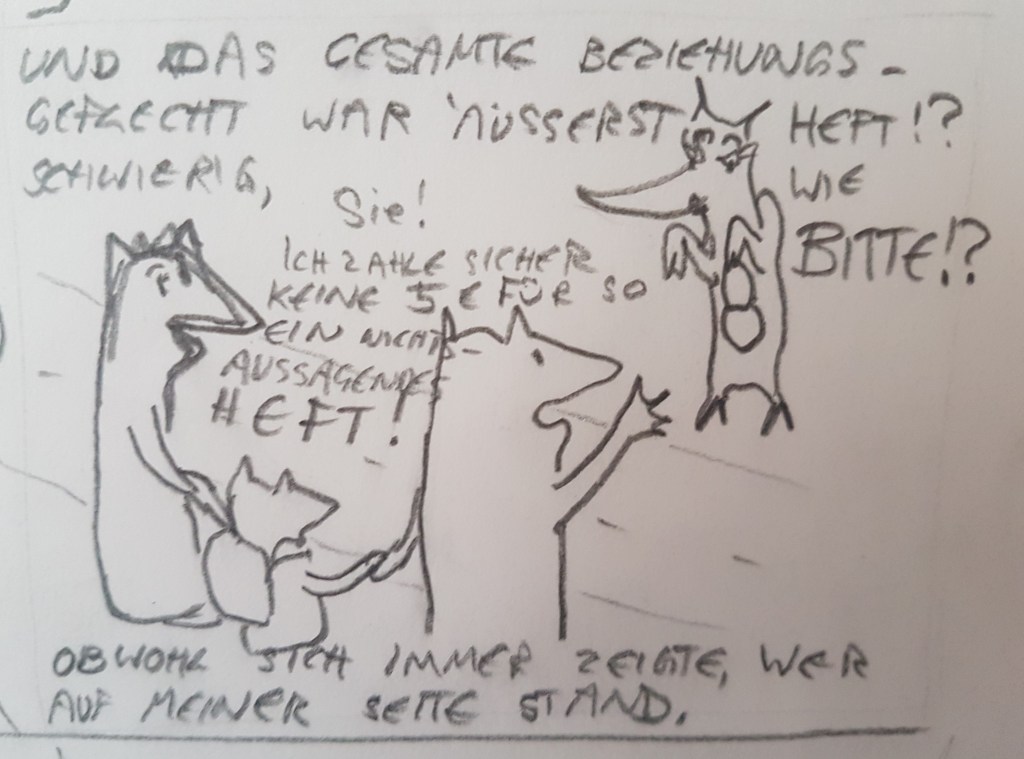 UND DAS GESAMTE BEZIEHUNGS-
GEFLECHT WAR ÄUSSERST
SCHWIERIG,
Sie!
ICH ZAHLE SICHER
KEINE 5 € FÜR SO
EIN NICHTS-
AUSSAGENDES
HEFT!
HEFT!?
WIE
BITTE!?
OBWOHL SICH IMMER ZEIGTE, WER
AUF MEINER SEITE STAND.